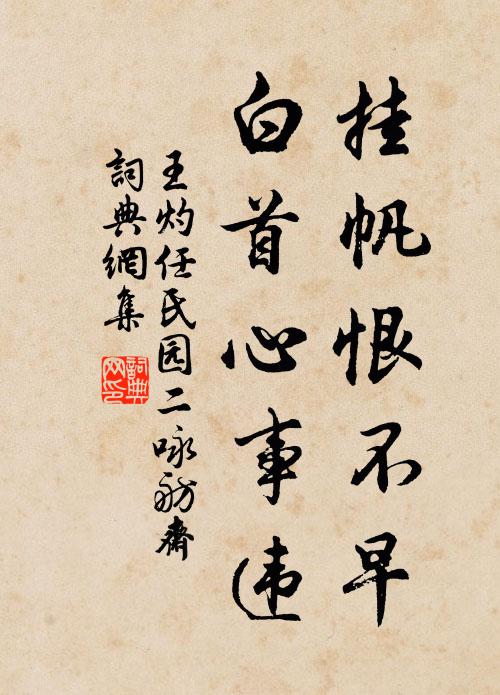 挂帆恨不早
白首心事违
王灼任民园二咏舫斋
詞典網集
詞典
网印